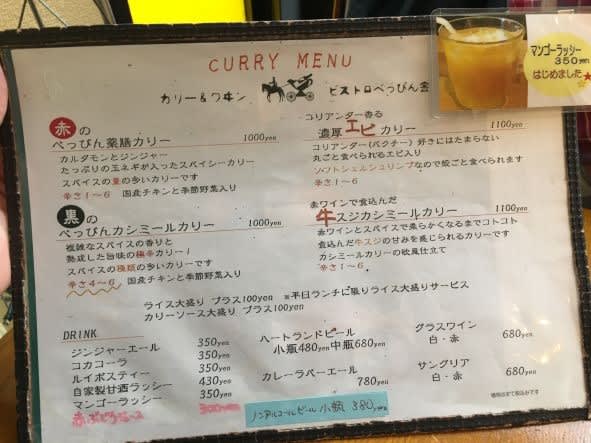 CURRY MENU
カリー&ワヰン ビストロべっぴん舎
マンゴーラッシー
350yen
はじめました☆
赤の
べっぴん薬膳カリー 1000yen
カルダモンとジンジャー
たっぷりの玉ネギが入ったスパイシーカリー
スパイスの量の多いカリーです
辛さ1～6 国産チキンと季節野菜入り
黒の
べっぴんカシミールカリー 1000yen
複雑なスパイスの香りと
熟成した旨味の極辛カリー!
スパイスの種類の多いカリーです
辛さ4～6 国産チキンと季節野菜入り
コリアンダー香る
濃厚エビカリー 1100yen
コリアンダー(パクチー)好きにはたまらない
丸ごと食べられるエビ入り
ソフトシェルシュリンプなので殻ごと食べれます
辛さ1～6
赤ワインで煮込んだ
牛スジカシミールカリー 1100yen
赤ワインとスパイスで柔らかくなるまでコトコト
煮込んだ牛スジの甘みを感じられるカリーです
カシミールカリーの欧風仕立て
辛さ1～6
ライス大盛り プラス100yen ※平日ランチに限りライス大盛りサービス
カリーソース大盛り プラス100yen
DRINK
ジンジャーエール 350yen
コカコーラ 350yen
ルイボスティー 350yen
自家製甘酒ラッシー 430yen
マンゴーラッシー 350yen
赤ぶどうジュース 300yen
ハートランドビール
小瓶480yen 中瓶680yen
カレーラバーエール
780yen
ノンアルコールビール 小瓶 380yen
グラスワイン
白・赤 680yen
サングリア
白・赤 680yen
価格は全て税込みです